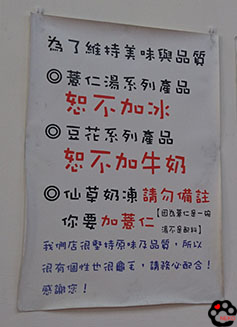 為了維持美味與品質
◎薏仁湯系列產品
恕不加冰
◎豆花系列產品
恕不加牛奶
◎仙草奶凍請勿備註
你要加薏仁【因為薏仁是一碗
湯不是配料】
我們店很堅持原味及品質,所以
很有個性也很龜毛,請務必配合!
感謝您!